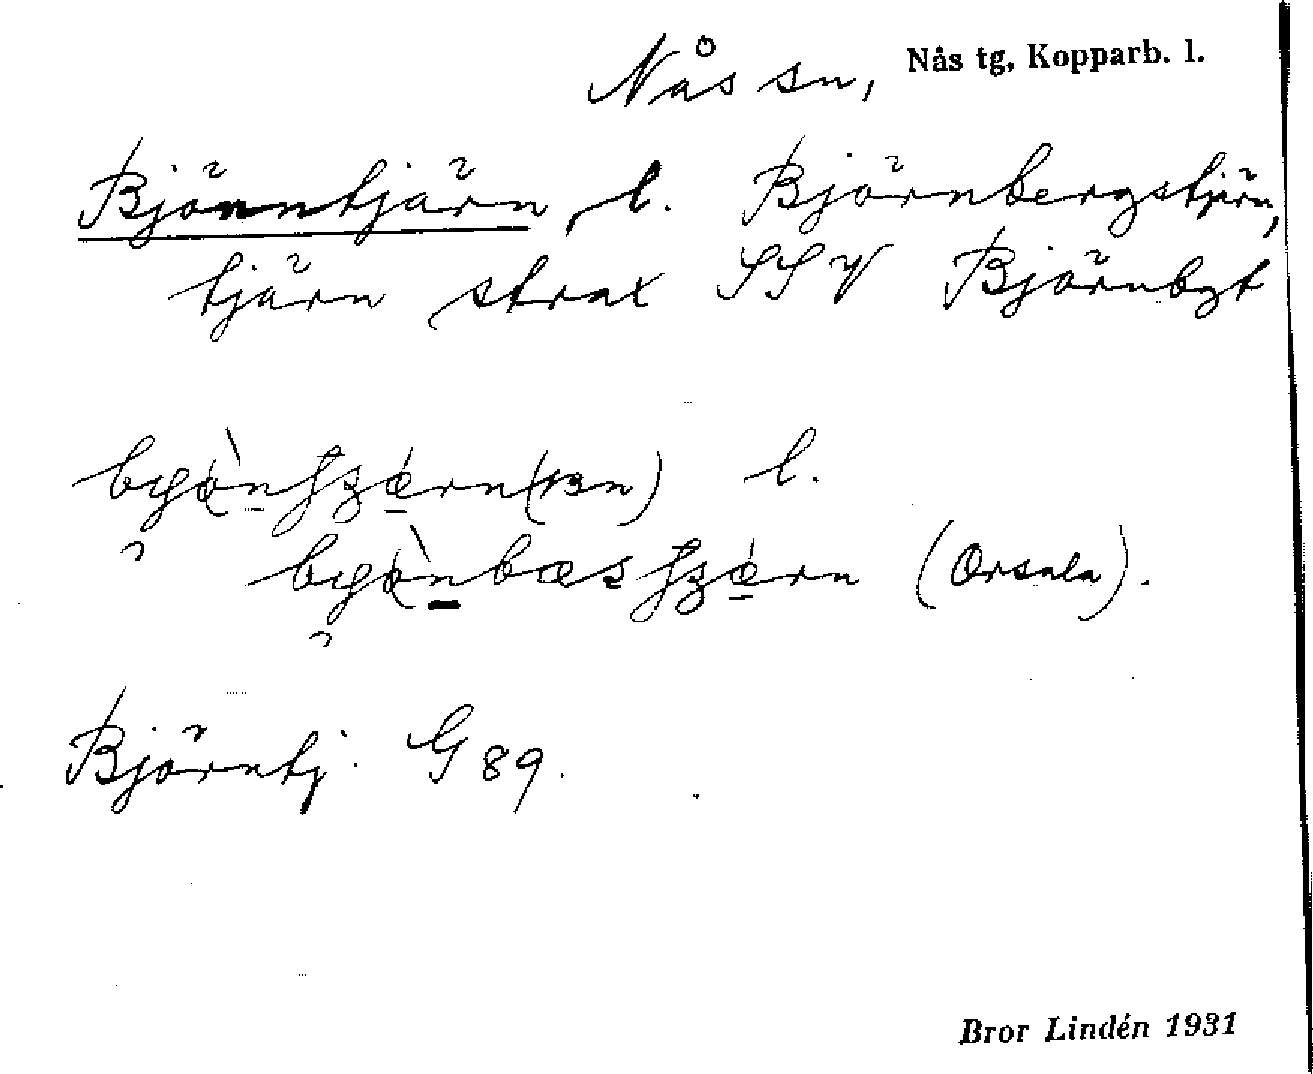 Nås sn, Nås tg, Kopparb. l.
Björntjärn, l. Björnbergstjärn,
tjärn strax SSV Björnbgt
l.
(Orsala).
Björntj. G 89.
Bror Lindén 1931